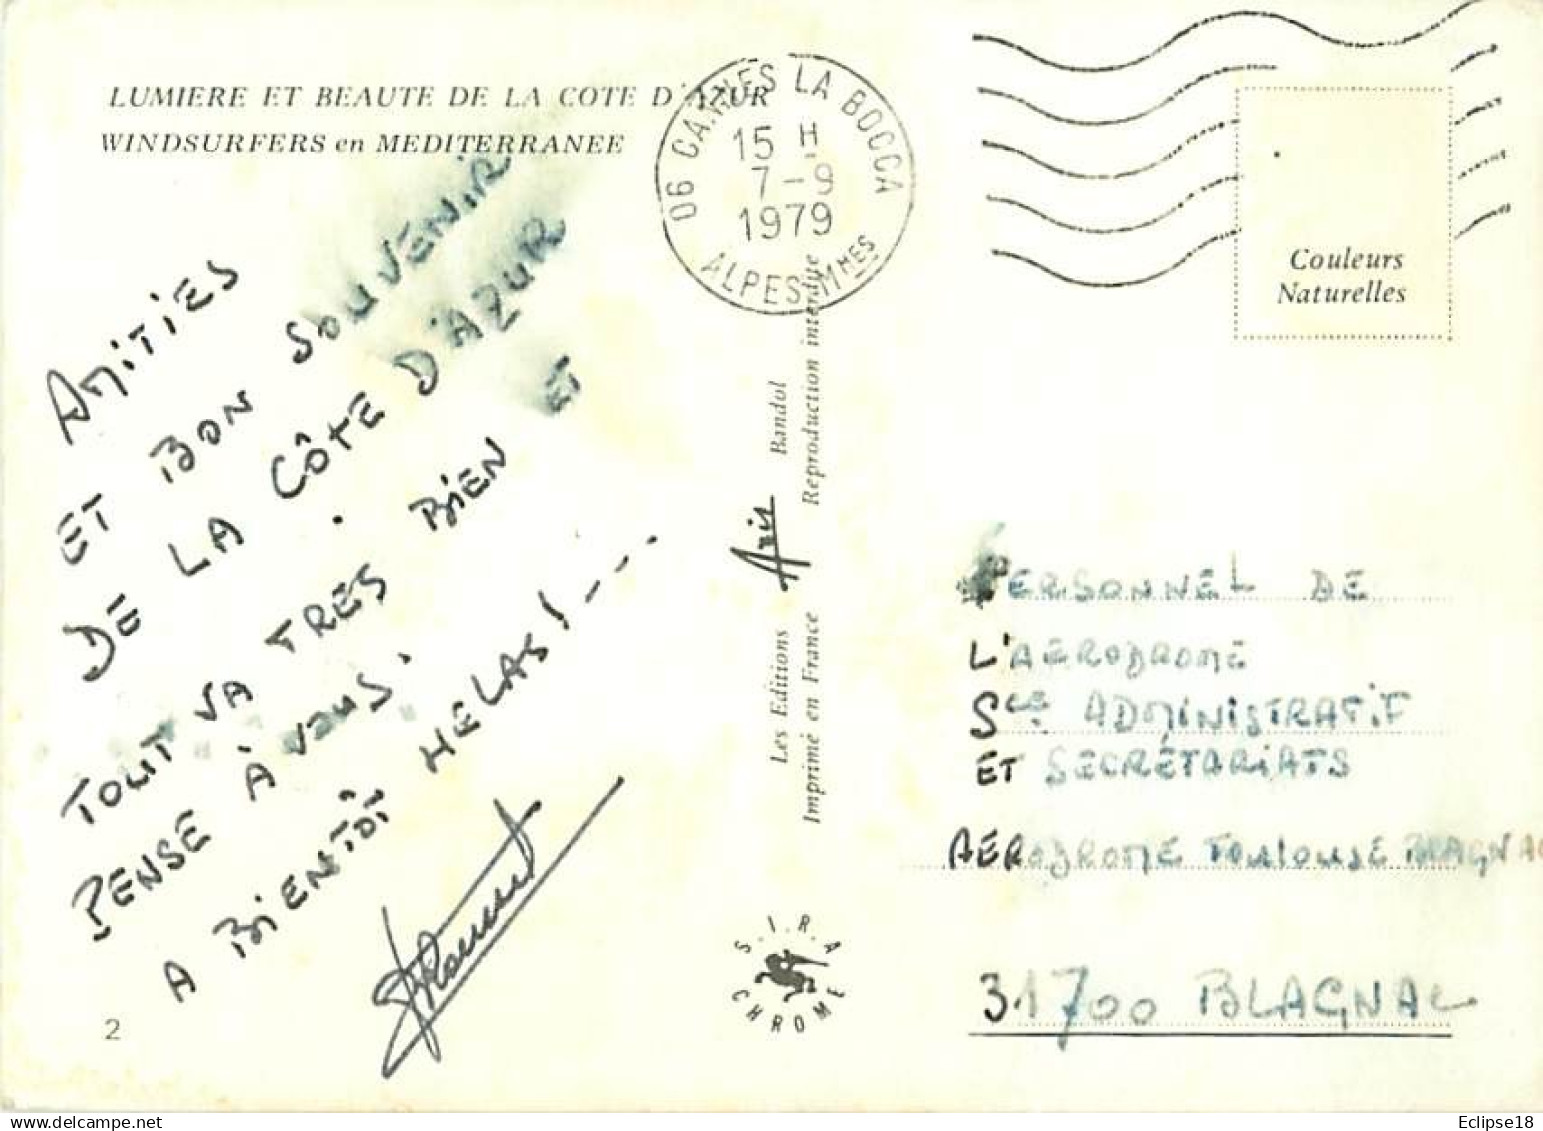 LUMIERE ET BEAUTE DE LA COTE D'AZUR
WINDSURFERS en MEDITERRANEE
AMITIES
ET BON SOUVENIR
DE LA CÔTE D'AZUR.
TOUT VA TRES BIEN ET
PENSE À VOUS.
A BIENTÔT HELAS! ---
2
06 CANNES LA BOCCA
15 H
7-9
1979
ALPES MMES
Les Editions Avis Bandol
Imprimé en France Reproduction interdite
S.I.R.A
CHROME
Couleurs
Naturelles
PERSONNEL DE
L'AERODROME
Sce ADMINISTRATIF
ET SECRÉTARIATS
AERODROME TOULOUSE BLAGNAC
31700 BLAGNAC
Eclipse18